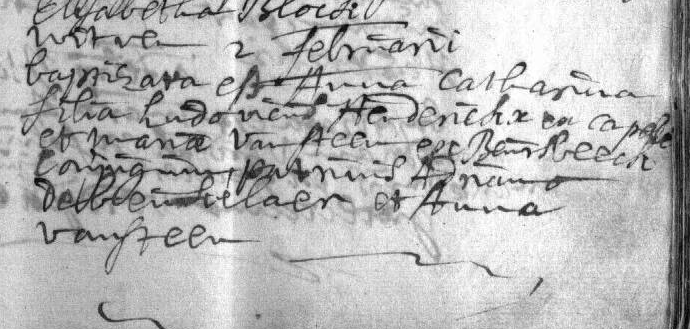 Elizabetha Bloickx
witven 2 februarii
baptizata est Anna Catharina
filia Ludovici Henderickx ex capelle
et maria vansteen ex Beirsbeeck
coniugum, patrinis Adriano
debleindelaer et Anna
vansteen